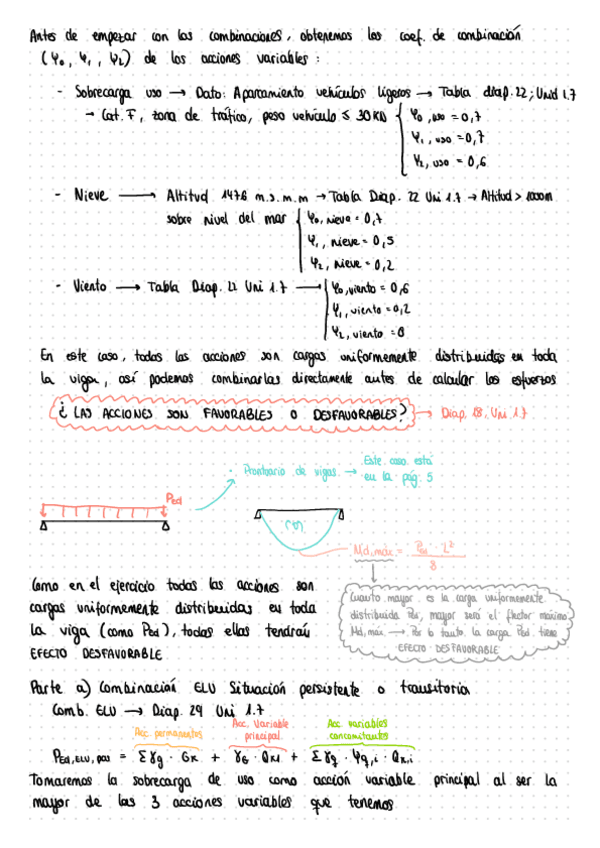 Antes de empezar con las combinaciones, obtenemos los coef. de combinación
(Ψ₀, Ψ₁, Ψ₂) de las acciones variables:
- Sobrecarga uso → Dato: Aparcamiento vehículos ligeros → Tabla diap. 22; Unid 1.7
→ Cat. F, zona de tráfico, peso vehículo ≤ 30 KN
Ψ₀,uso = 0,7
Ψ₁,uso = 0,7
Ψ₂,uso = 0,6
- Nieve → Altitud 1476 m.s.m.m → Tabla Diap. 22 Uni 1.7 → Altitud > 1000m
sobre nivel del mar
Ψ₀,nieve = 0,7
Ψ₁,nieve = 0,5
Ψ₂,nieve = 0,2
- Viento → Tabla Diap. 22 Uni 1.7 →
Ψ₀,viento = 0,6
Ψ₁,viento = 0,2
Ψ₂,viento = 0
En este caso, todas las acciones son cargas uniformemente distribuidas en toda
la viga, así podemos combinarlas directamente antes de calcular los esfuerzos
¿LAS ACCIONES SON FAVORABLES O DESFAVORABLES? → Diap. 18, Uni 1.7
· Prontuario de vigas → Este caso está
en la pág. 5
PEd
Md,máx = PEd · L² / 8
Como en el ejercicio todas las acciones son
cargas uniformemente distribuidas en toda
la viga (como PEd), todas ellas tendrán
EFECTO DESFAVORABLE
Cuanto mayor es la carga uniformemente
distribuida PEd, mayor será el flector máximo
Md,máx → Por lo tanto, la carga PEd tiene
EFECTO DESFAVORABLE
Parte a) Combinación ELU Situación persistente o transitoria
Comb. ELU → Diap. 29 Uni 1.7
Acc. permanentes
Acc. Variable
principal
Acc. variables
concomitantes
PEd,ELU,pas = Σγg · Gk + γG · Qk1 + Σγq · Ψq,i · Qk,i
Tomaremos la sobrecarga de uso como acción variable principal al ser la
mayor de las 3 acciones variables que tenemos